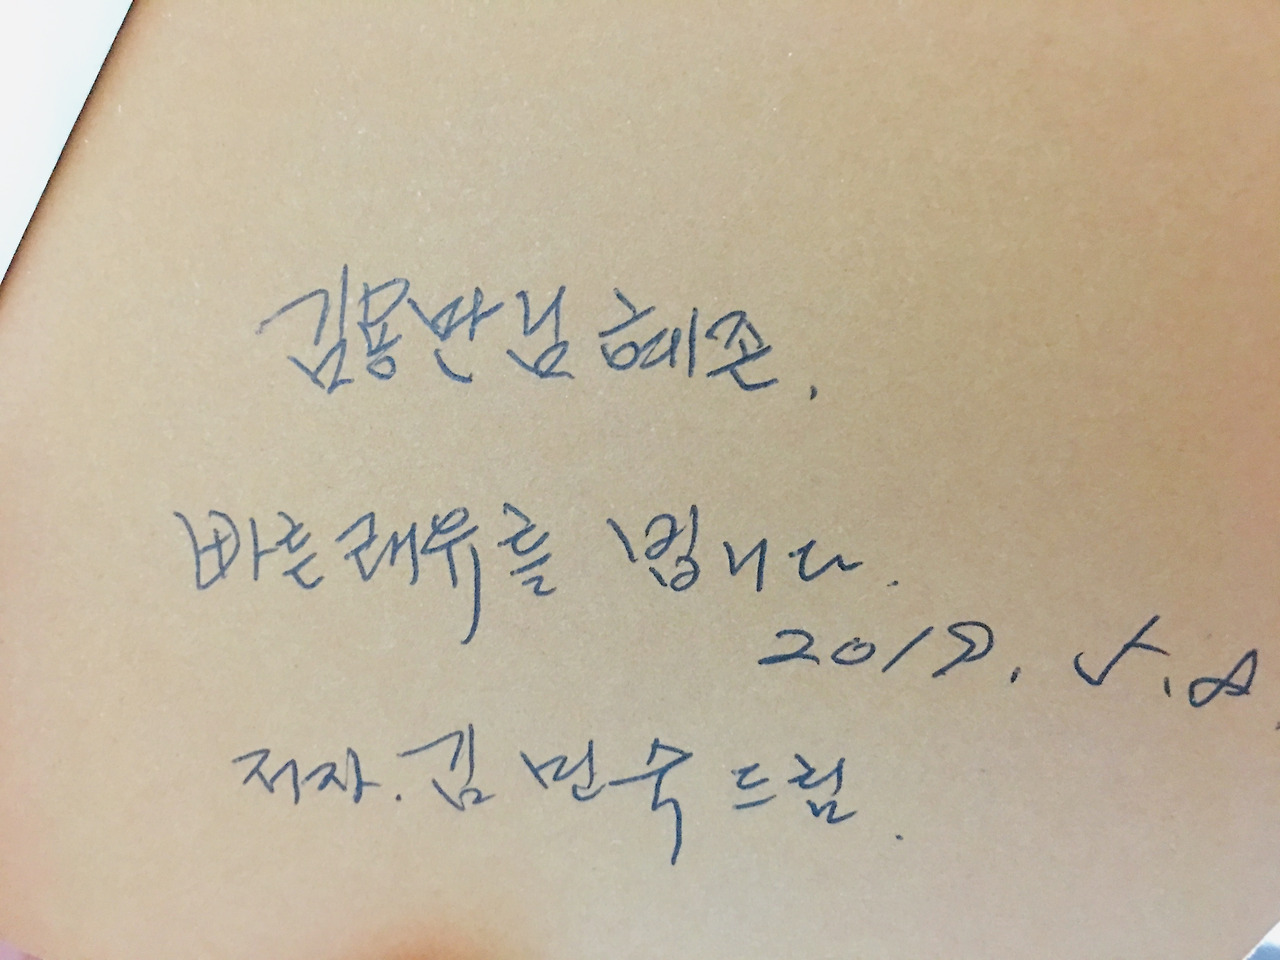 김용만님 혜존,
빠른 쾌유를 빕니다.
2019. 5. 8.
저자. 김 민숙 드림.